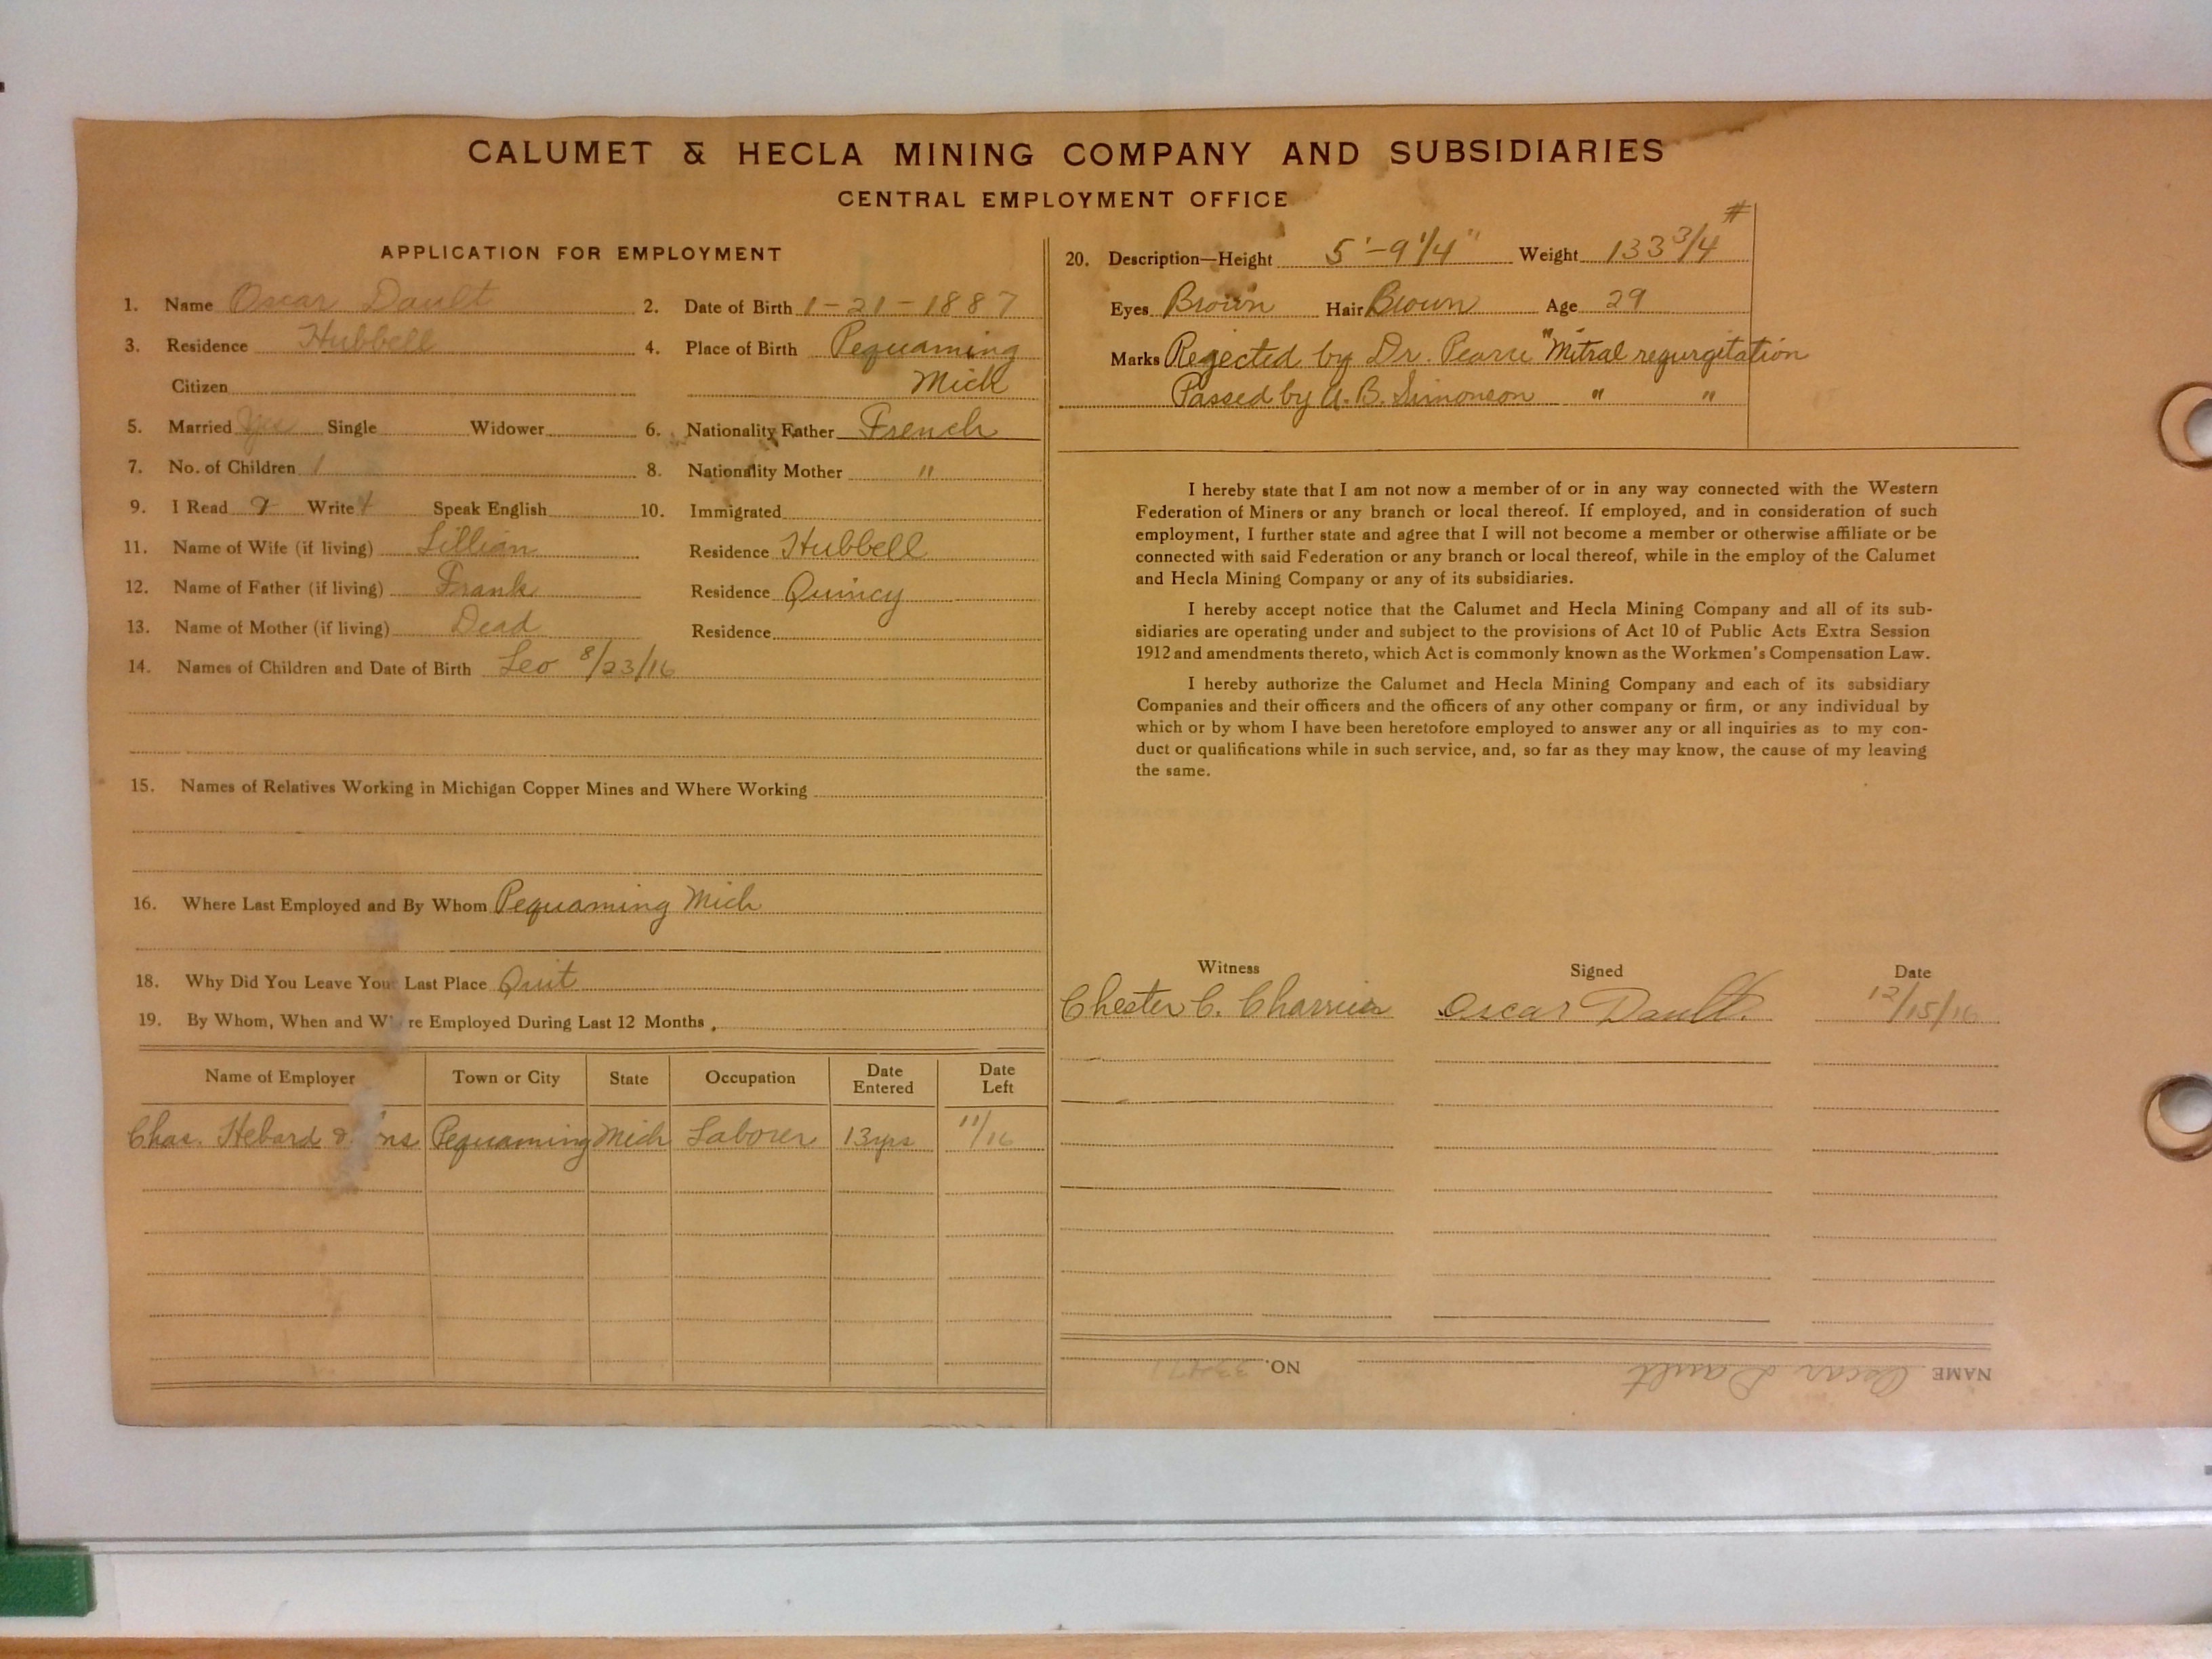 CALUMET & HECLA MINING COMPANY AND SUBSIDIARIES
CENTRAL EMPLOYMENT OFFICE
APPLICATION FOR EMPLOYMENT
1. Name Oscar Dault 2. Date of Birth 1-21-1887
3. Residence Hubbell 4. Place of Birth Pequaming
Citizen Mich
5. Married Yes Single Widower 6. Nationality Father French
7. No. of Children 1 8. Nationality Mother "
9. I Read Write Speak English 10. Immigrated
11. Name of Wife (if living) Lillian Residence Hubbell
12. Name of Father (if living) Frank Residence Quincy
13. Name of Mother (if living) Dead Residence
14. Names of Children and Date of Birth Leo 8/23/16
15. Names of Relatives Working in Michigan Copper Mines and Where Working
16. Where Last Employed and By Whom Pequaming Mich
18. Why Did You Leave You Last Place Quit
19. By Whom, When and W re Employed During Last 12 Months
Name of Employer Town or City State Occupation Date Entered Date Left
Chas. Hebard & ns Pequaming Mich Laborer 13yrs 11/16
20. Description—Height 5'-9 1/4" Weight 133 3/4 #
Eyes Brown Hair Brown Age 29
Marks Rejected by Dr. Pearce "Mitral regurgitation
Passed by A. B. Simonson " "
I hereby state that I am not now a member of or in any way connected with the Western
Federation of Miners or any branch or local thereof. If employed, and in consideration of such
employment, I further state and agree that I will not become a member or otherwise affiliate or be
connected with said Federation or any branch or local thereof, while in the employ of the Calumet
and Hecla Mining Company or any of its subsidiaries.
I hereby accept notice that the Calumet and Hecla Mining Company and all of its sub-
sidiaries are operating under and subject to the provisions of Act 10 of Public Acts Extra Session
1912 and amendments thereto, which Act is commonly known as the Workmen's Compensation Law.
I hereby authorize the Calumet and Hecla Mining Company and each of its subsidiary
Companies and their officers and the officers of any other company or firm, or any individual by
which or by whom I have been heretofore employed to answer any or all inquiries as to my con-
duct or qualifications while in such service, and, so far as they may know, the cause of my leaving
the same.
Witness Signed Date
Chester C. Oscar Dault. 12/15/16
NAME Oscar Dault NO.